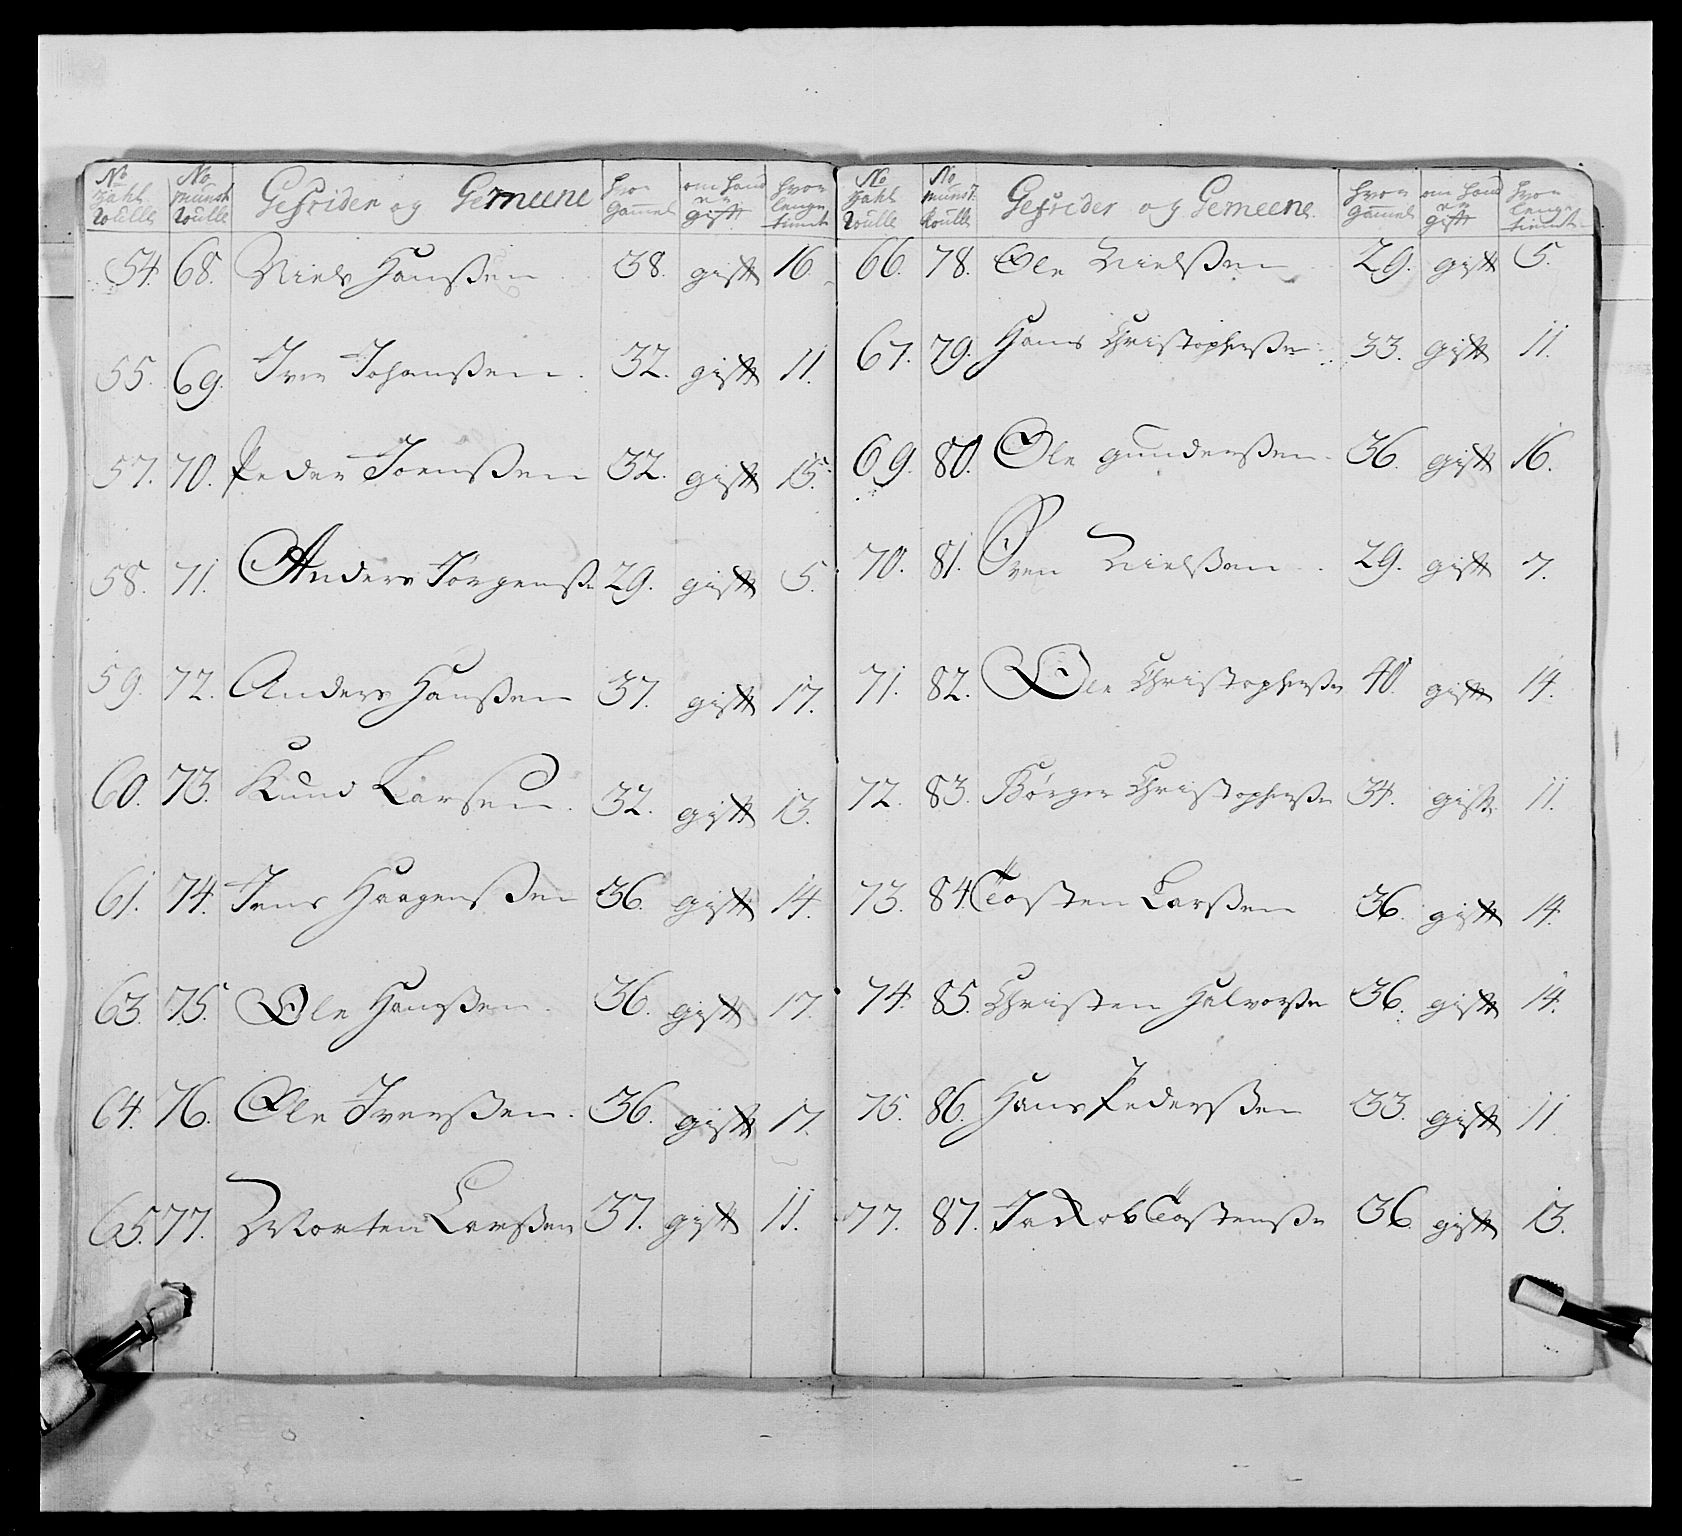 No Tahl Roulle | No Munst Roulle | Gefrider og Gemeene | hvor Gammel | om hand er gift | hvor lenge tient
54. 68. Niels Hanßen 38. gift 16
55. 69. Iver Johanßen. 32. gift 11.
57. 70. Peder Joenßen 32. gift 15.
58. 71. Anders Jørgenß 29. gift 5.
59. 72. Anders Hanßen 37. gift 17.
60. 73. Knud Larsen. 32. gift 13.
61. 74. Jens Haagenßen 36. gift 14.
63. 75. Ole Hanßen. 36. gift 17.
64. 76. Ole Iverßen. 36. gift 17.
65. 77. Morten Larßen 37. gift 11.
No Tahl Roulle | No Munst Roulle | Gefrider og Gemeene. | hvor Gammel | om hand er gift | hvor lenge tient
66. 78. Ole Nielßen 29. gift 5.
67. 79. Hans Christopherßen. 33. gift 11.
69. 80. Ole Gunderßen. 36. gift 16.
70. 81. Sven Nielßen. 29. gift 7.
71. 82. Ole Christopherßen 40. gift 14.
72. 83. Børger Christopherßen 34. gift 11.
73. 84. Tosten Larßen 36. gift 14.
74. 85. Christen Halvorßen 36. gift 14.
75. 86. Hans Pederßen 33. gift 11
77. 87. Jackob Tostenßen 36. gift 13.